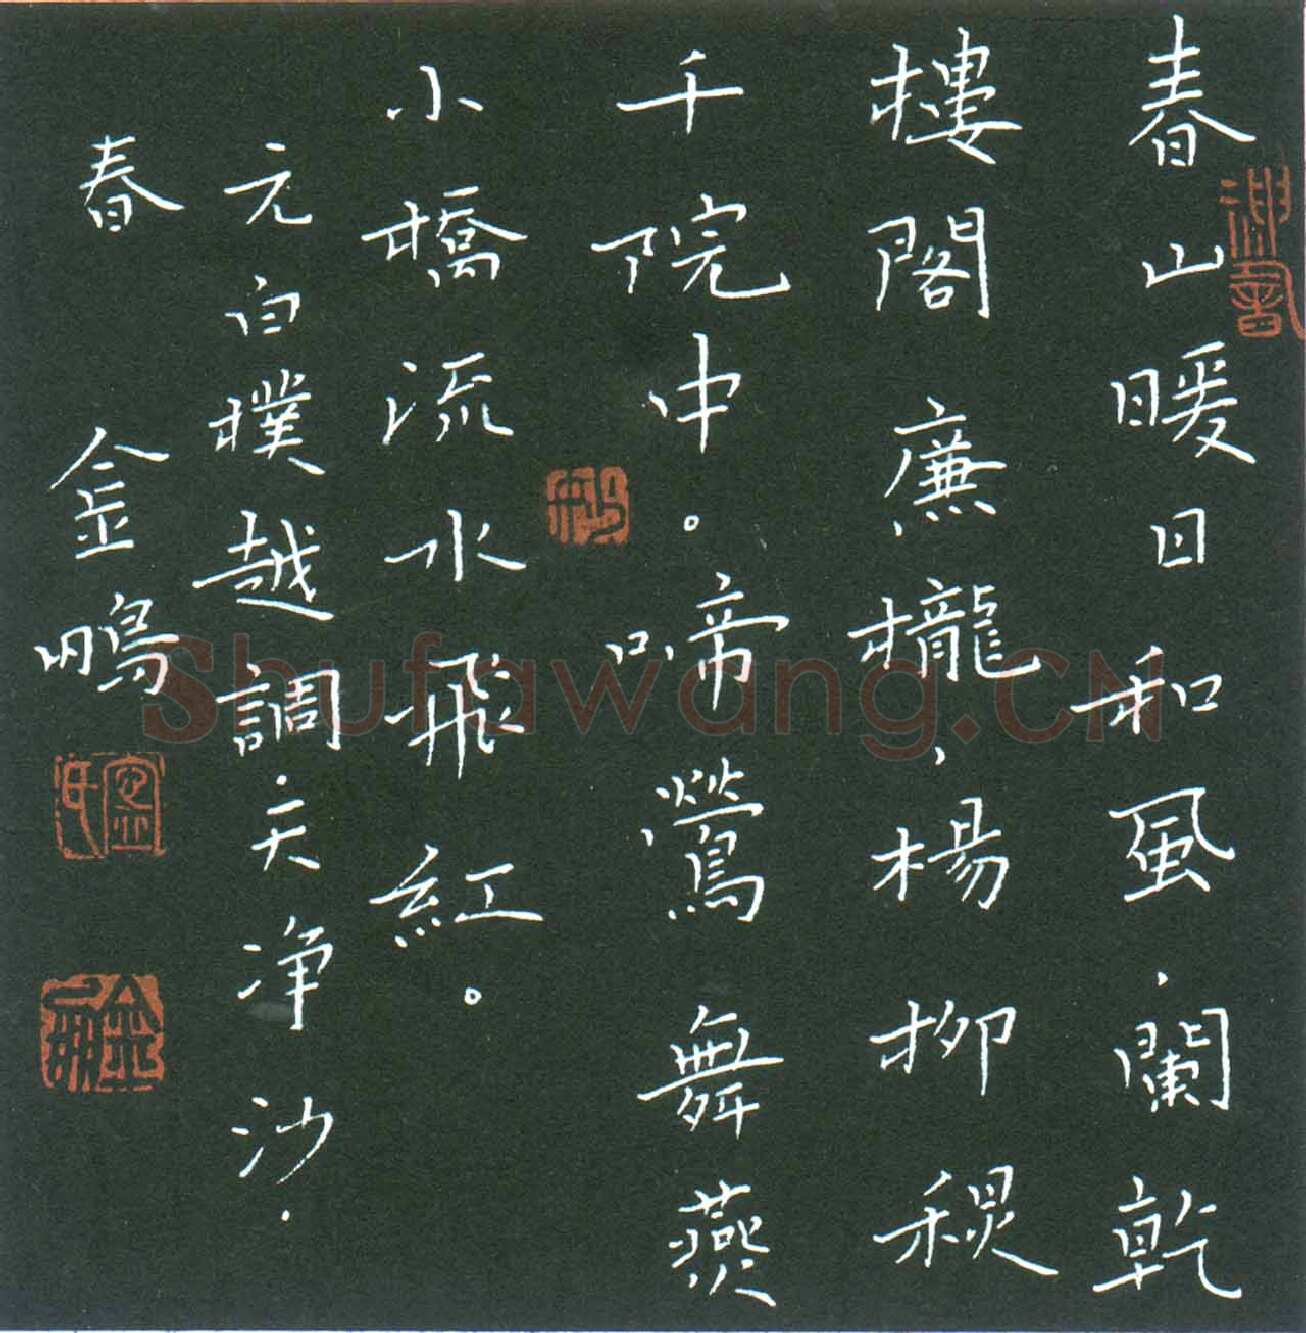 春山暖日和風,闌乾
樓閣廉櫳,楊柳稷
千院中。啼鶯舞燕
小橋流水飛紅。
元白樸越調·天净沙·
春 金鵬
Shufawang.CN